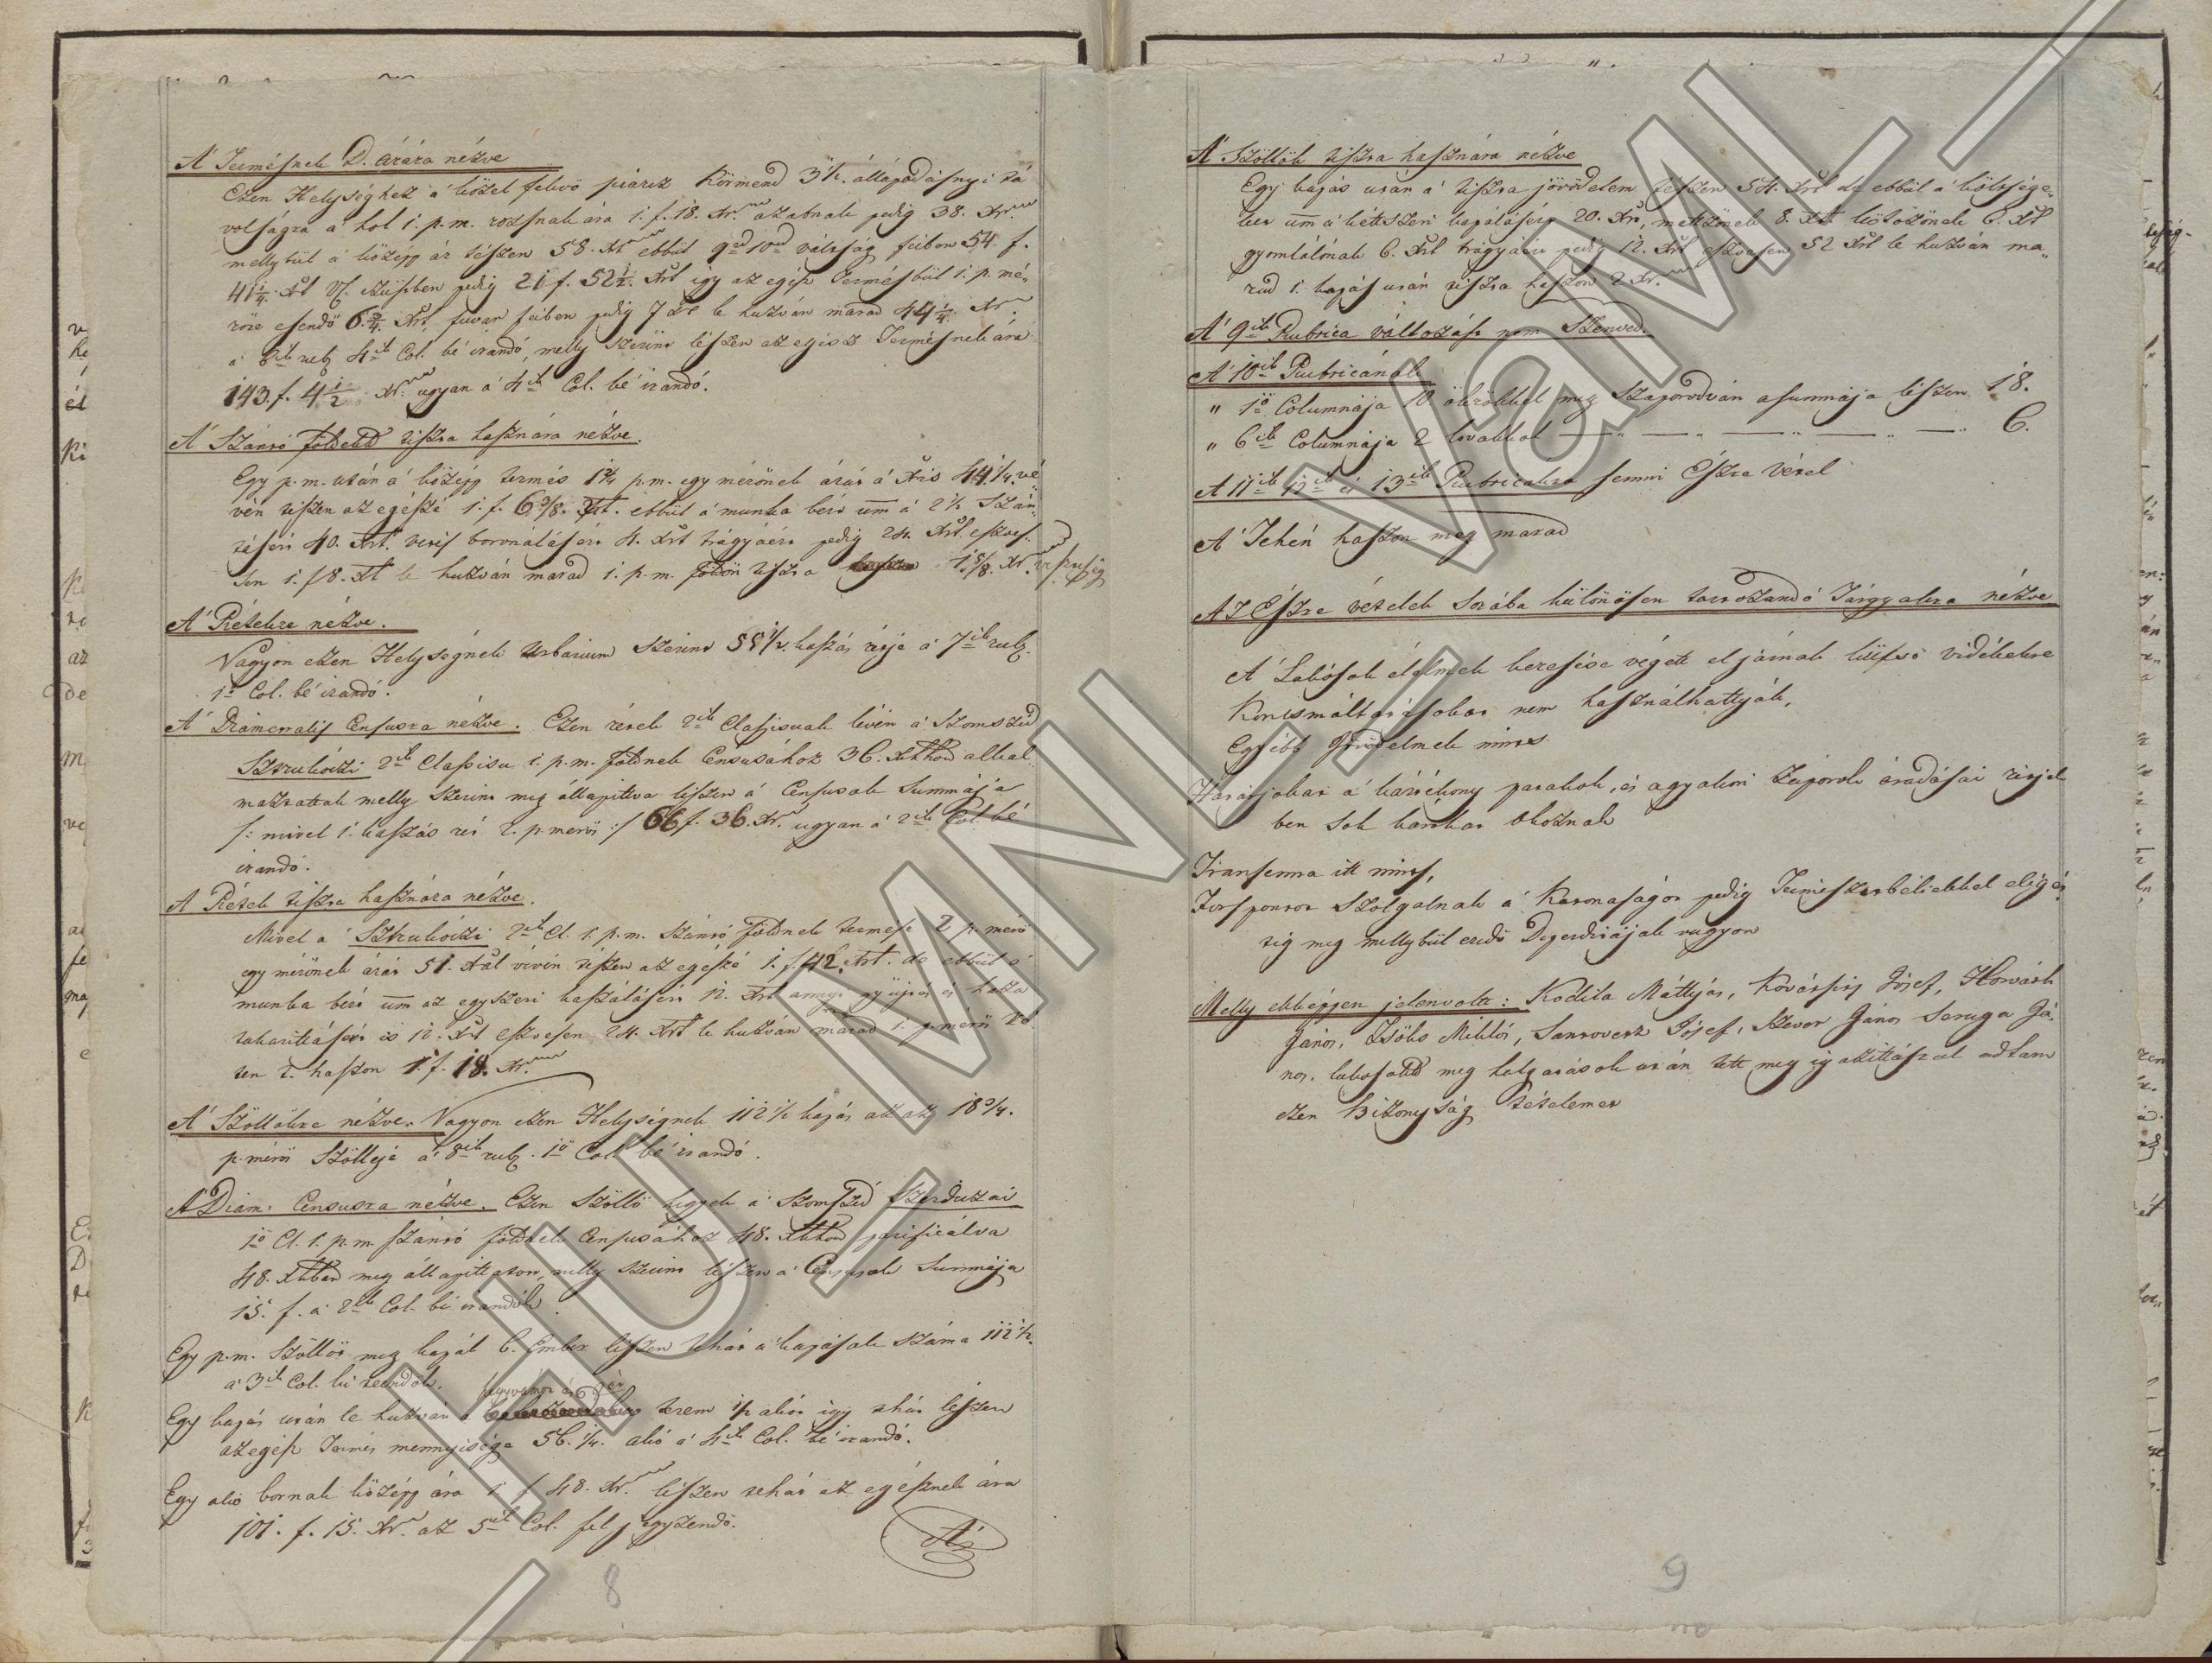 A' Termésnek D. árára nézve
Ezen Helységhez a' közel fekvő piarcz Körmend 3½. állapodásnyi tá
volságra a' hol 1. p. m. rozsnak ára 1. f. 18. Xr. azabnak pedig 38. Xr.
mellybül a' közép ár tészen 58. Xr ebbül 9ed 10ed váltság feiben 54. f.
41¼. Xrt Vf. szüskben pedig 21 f. 52½. Xrt így az egész Termésbül 1. p. mé-
rőre esendő 6.¾. Xrt, fuvar feiben pedig 7 Xr le huzván marad 44¼ Xr.
a' 6ik rub. 4ik Col. bé irandó, melly szerint lészen az egész Termésnek ára
143. f. 4½ Xr. ugyan a' 4ik Col. bé irandó.
A' Szántó földekk tiszta hasznára nézve.
Egy p. m. után a' közép termés 1¾ p. m. egy mérőnek árát á Xris 44¼. vé
vén tészen az egésszé 1. f. 6⅜. Xrt. ebbül a' munka bért um a' 2½ Szán-
tásért 40. Xrt. vetés boronálásért 4. Xrt trágyáért pedig 24. Xrt eszves-
sen 1. f 8. Xrt le huzván marad 1. p. m. földön tiszta 1.⅝. Xr. veszteség
A' Rétekre nézve.
Vagyon ezen Helységnek Urbarium szerint 55½. kaszás rétje a' 7ik rub.
1ő Col. bé irandó.
A' Diametralis Censusra nézve. Ezen rétek 2ik Classisuak lévén a' Szomszéd
Sztrukóczi 2ik Classisu 1. p. m. földnek Censusához 36. Xrkkal alkal
maztattak melly szerint meg állapitva lészen a' Censusok Summája
/: mivel 1. kaszás rét 2. p. mérős :/ 66 f. 36. Xr. ugyan a 2ik Col. bé
irandó.
A Rétek tiszta hasznára nézve.
Mivel a' Sztrukóczi 2ik Cl. 1. p. m. Szántó földnek termése 2 p. mérő
egy mérőnek árát 51. Xrál vévén tészen az egésszé 1. f. 42. Xrt. de ebbül a'
munka bért um az egyszeri kaszálásért 12. Xrt annyi gyüjtés és haza
takaritásért is 12. Xrt eszvesen 24. Xrt le huzván marad 1. p. mérő ré
ten t. haszon 1. f. 18. Xr.
A' Szöllőkre nézve. Vagyon ezen Helységnek 112½ kapás azaz 18¾.
p. mérő Szöllője a' 8ik rub. 1ő Col. bé irandó.
A' Diam. Censusra nézve. Ezen Szöllő hegyek a' szomszéd Szerdiczai
1ő Cl. 1. p. m. szántó földnek Censusához 48. Xrkkal parificálva
48. Xrkban meg állapittatott, melly szerint lészen a' Censusok Summája
15. f. a' 2ik Col. bé irandók
Egy p. m. Szöllőt meg kapál 6. Ember lészen tehát a' kapások száma 112½.
a' 3ik Col. bé teendők.
Egy kapás után le huzván a' terem ½ akót így tehát lészen
az egész Termés mennyisége 56.¼. akó a' 4ik Col. bé irandó.
Egy akó bornak közép ára 1 f 48. Xr. lészen tehát az egésznek ára
101. f. 15. Xr. az 5ik Col. fel jegyzendő.
A'
8
A' Szöllők tiszta hasznára nézve
Egy kapás után a' tiszta jövödelem tészen 54. Xrt de ebbül a' költsége-
ket um a' kéttszeri kapálásért 20. Xrt, mettzőnek 8. Xrt kötözőnek 6. Xrt
gyomlálónak 6. Xrt trágyáért pedig 12. Xrt eszvesen 52 Xrt le huzván ma-
rad 1. kapás után tiszta haszon 2 Xr.
A' 9ik Rubrica változást nem Szenved.
A' 10ik Rubricának
" 1ő Columnája 10 ökrökkel meg szaporodván a summája lészen 18.
" 6ik Columnája 2 lovakkal — " — " — " — " — " 6.
A 11ik 12ik és 13ik Rubricakra semmi Észre vétel
A' Tehén haszon meg marad
AZ Észre vételek Sorába különösen tartozandó Tárgyakra nézve
A' Lakósok élelmek keresése végett el járnak külfső vidékekre
Korcsmáltatásokat nem használhattyák,
Egyébb Jövödelmek nints
Határjokat a' kártékony patakok, és a gyakori Záporok áradásai rétjek
ben sok károkat okoznak
Transenna itt nints,
Forspontot szolgálnak a' Katonaságot pedig Természetbéliekkel elégé-
tig meg mellybül eredő Deperditájok vagyon
Melly ekképpen jelenvolt: Kodila Mátyás, Kovásits Jósef, Horváth
János, Zsöks Miklós, Santovecz Jósef, Szever János Seruga Já-
nos, lakosokk meg halgatások után tett meg igazittásrul adtam
ezen Bizonyság tételemet
9
HU MNL VaML